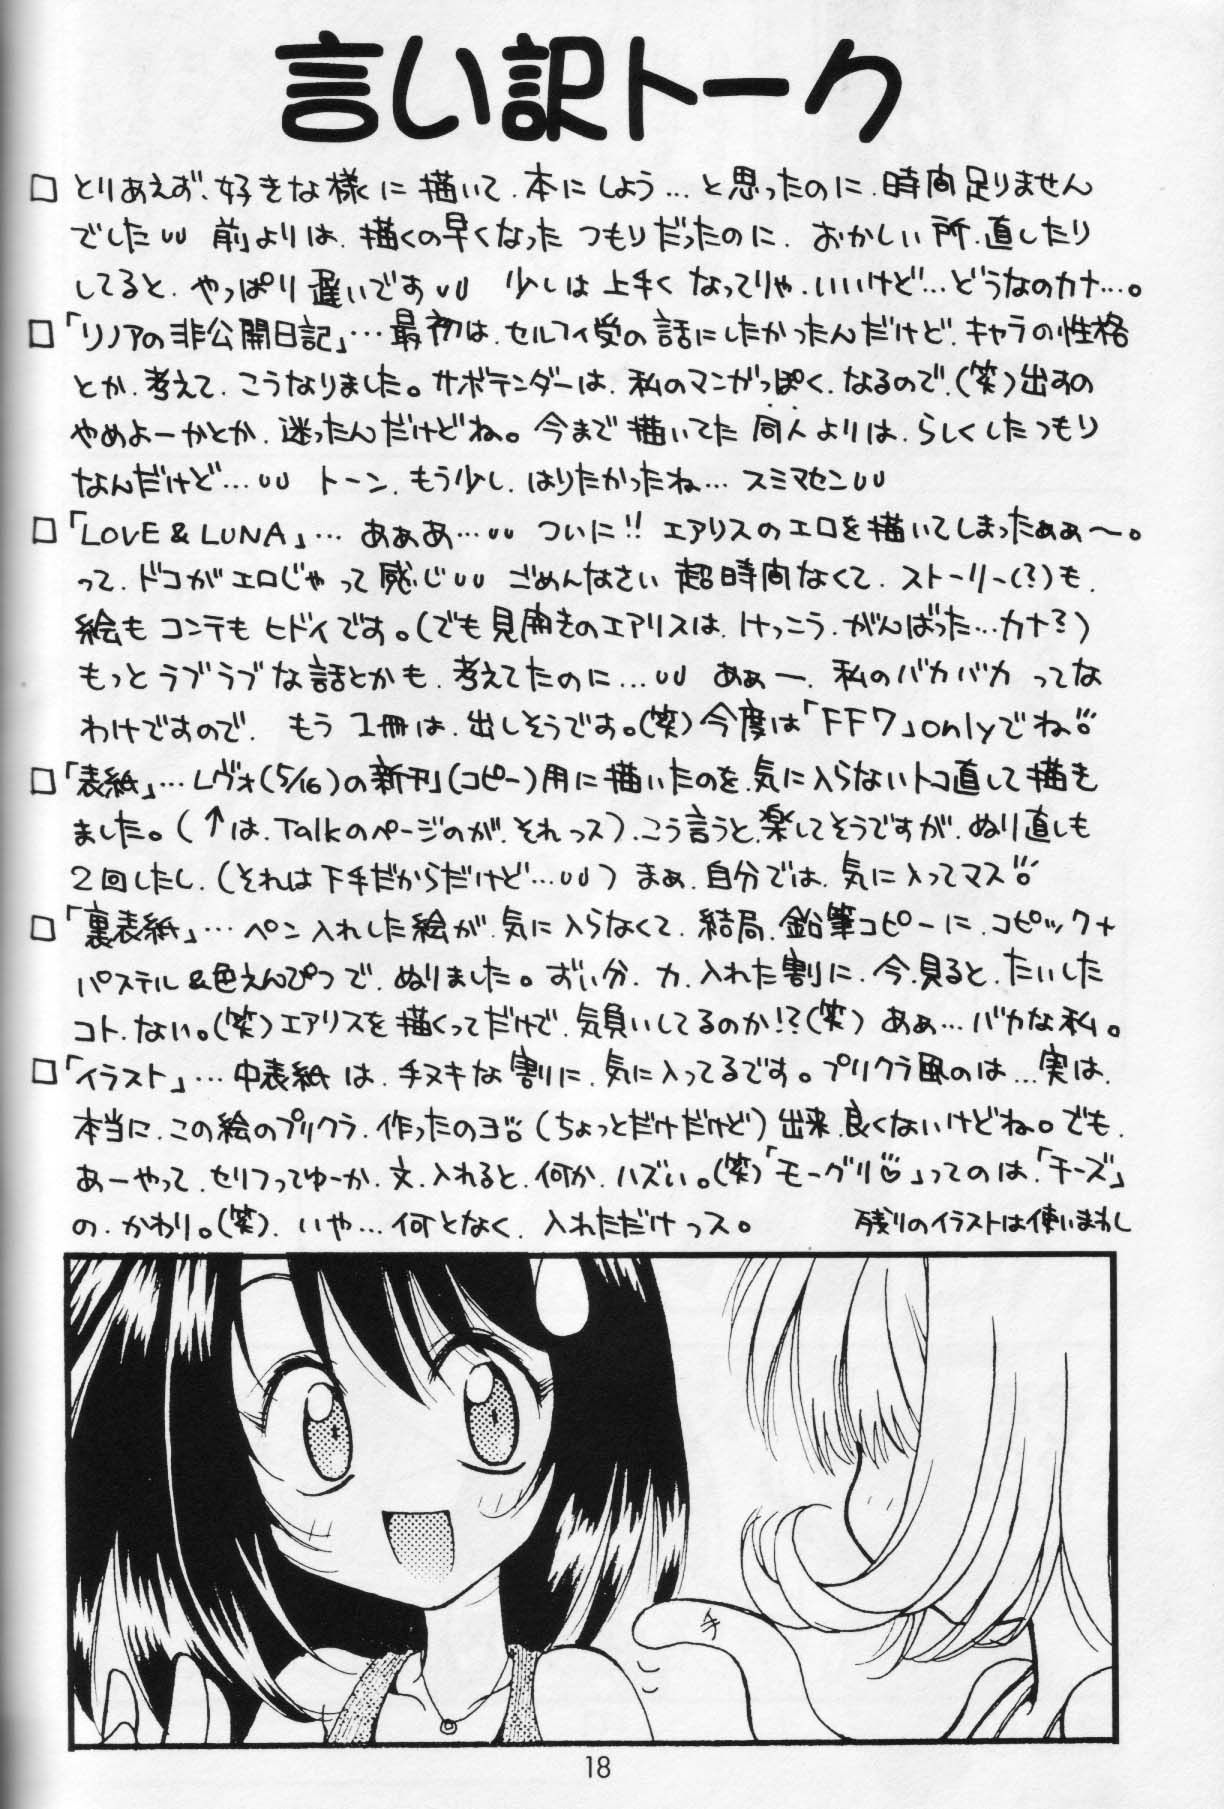 言い訳トーク
□とりあえず、好きな様に描いて、本にしよう…と思ったのに、時間足りません
でした 前よりは、描くの早くなった つもりだったのに、おかしい所、直したり
してると、やっぱり遅いです 少しは上手く なってりゃ、いいけど…どうなのカナ…。
□「リノアの非公開日記」…最初は、セルフィ受の話にしたかったんだけど、キャラの性格
とか、考えて、こうなりました。サボテンダーは、私のマンガっぽく、なるので、(笑)出すの
やめよーかとか、迷ったんだけどね。今まで描いてた同人よりは、らしくしたつもり
なんだけど… トーン、もう少し、はりたかったね…スミマセン
□「LOVE & LUNA」…あぁあ… ついに!!エアリスのエロを描いてしまったぁぁ〜。
って、ドコがエロじゃって感じ ごめんなさい 超時間なくて、ストーリー(?)も、
絵もコンテもヒドイです。(でも見開きのエアリスは、けっこう、がんばった…カナ?)
もっとラブラブな話とかも、考えてたのに… あぁー、私のバカバカ ってな
わけですので、もう1冊は、出しそうです。(笑)今度は「FF7」onlyでね
□「表紙」…レヴォ(5/16)の新刊(コピー)用に描いたのを、気に入らないトコ直して描き
ました。(↑は、Talkのページのが、それっス)、こう言うと、楽してそうですが、ぬり直しも
2回したし、(それは下手だからだけど…)まぁ、自分では、気に入ってマス
□「裏表紙」…ペン入れした絵が、気に入らなくて、結局、鉛筆コピーに、コピック+
パステル&色えんぴつで、ぬりました。ずいぶ分、力、入れた割に、今、見ると、たいした
コト、ない。(笑)エアリスを描くってだけで、気負いしてるのか!?(笑)あぁ…バカな私。
□「イラスト」…中表紙は、手ヌキな割に、気に入ってるです。プリクラ風のは…実は、
本当に、この絵のプリクラ、作ったのヨ(ちょっとだけだけど)出来、良くないけどね。でも、
あーやって、セリフってゆーか、文、入れると、何か、ハズい。(笑)「モーグリ♡」ってのは、「チーズ」
の、かわり。(笑)、いや…何となく、入れただけっス。 残りのイラストは使いまわし
手
18